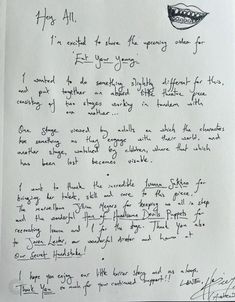 Hey All,
I'm excited to share the upcoming video for
'Eat Your Young'.
I wanted to do something slightly different for this,
and put together an absurd little theatre piece
consisting of two stages working in tandem with
one another...
One stage viewed by adults on which the characters
see something as they engage with their world, and
another stage, watched by children, where that which
has been lost becomes visible.
I want to thank the incredible Ivanna Sakhno for
bringing her talent, skill and care to this piece, to
the marvellous Jillian Meyers for keeping us all in step
and the wonderful of Handsome Devils Puppets for
recreating Ivanna and I for the stage. Thank you also
to Jason Lester, our wonderful director and team at
Our Secret Handshake!
I hope you enjoy our little horror story and as always,
Thank You so much for your continued support!!